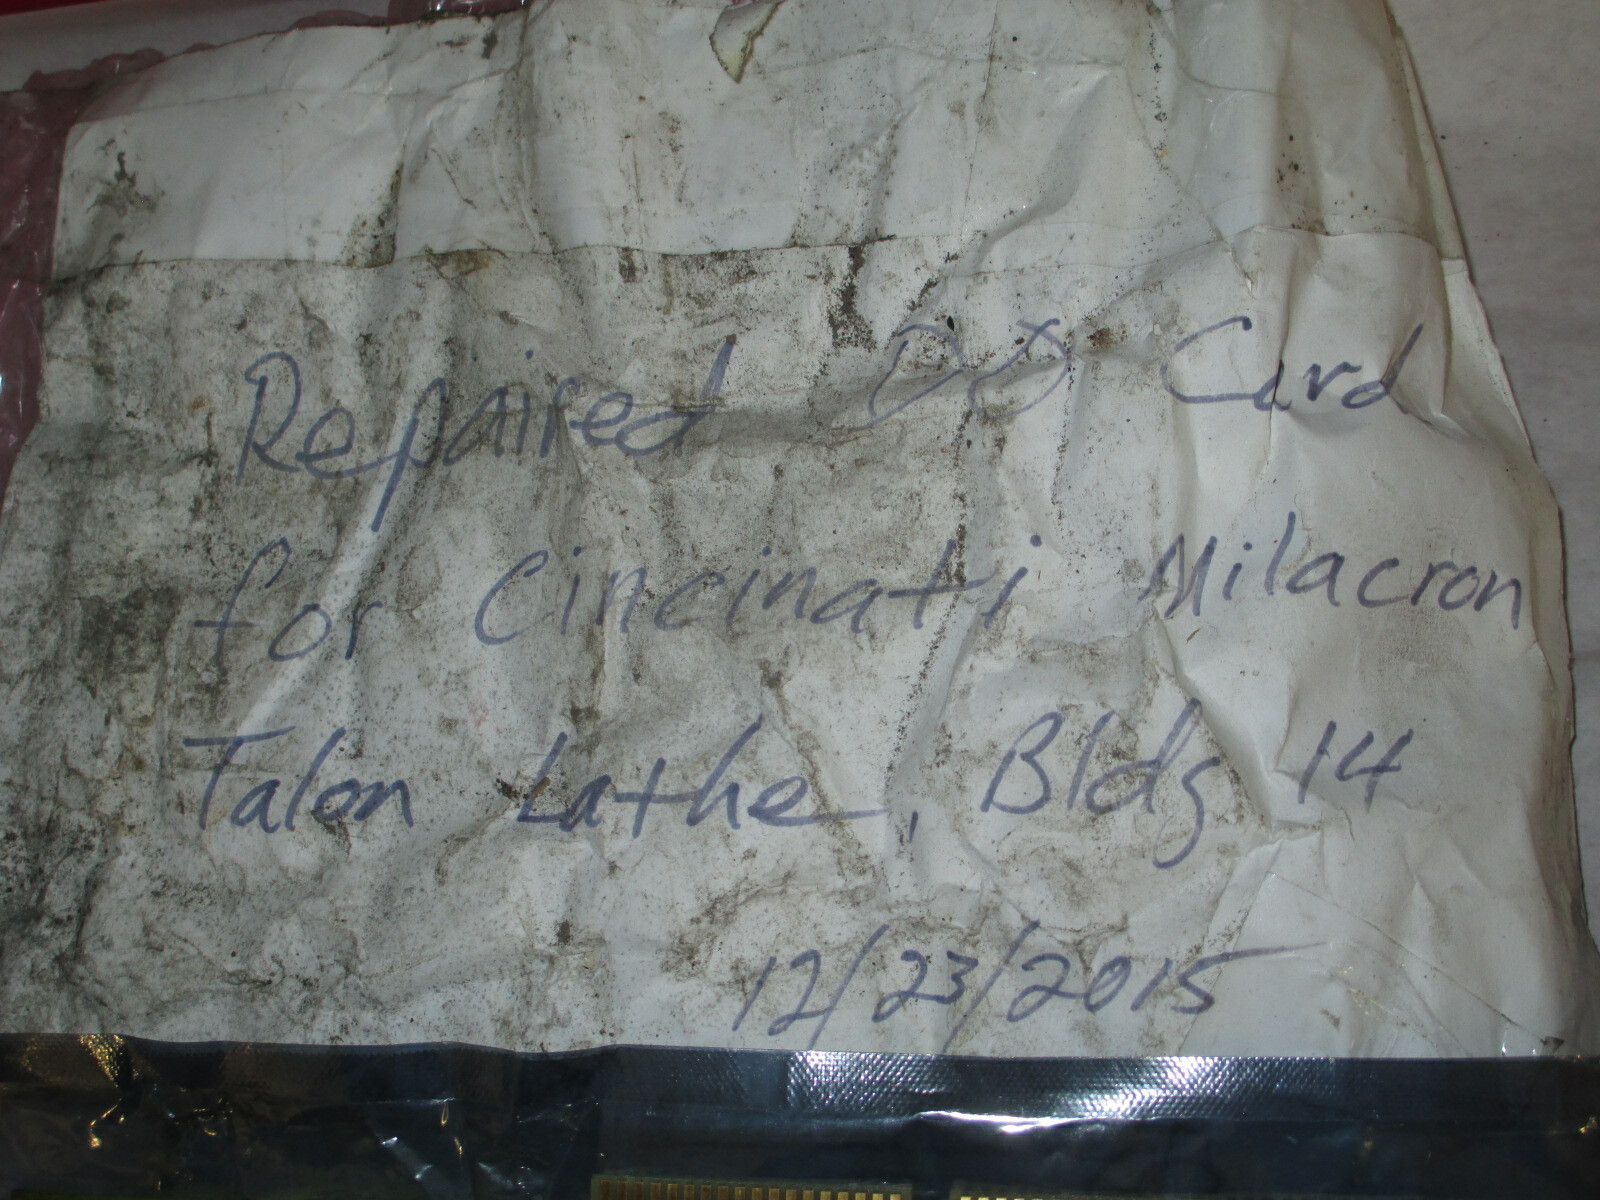 Repaired DD Card
for Cincinati Milacron
Talon Lathe, Bldg 14
12/23/2015